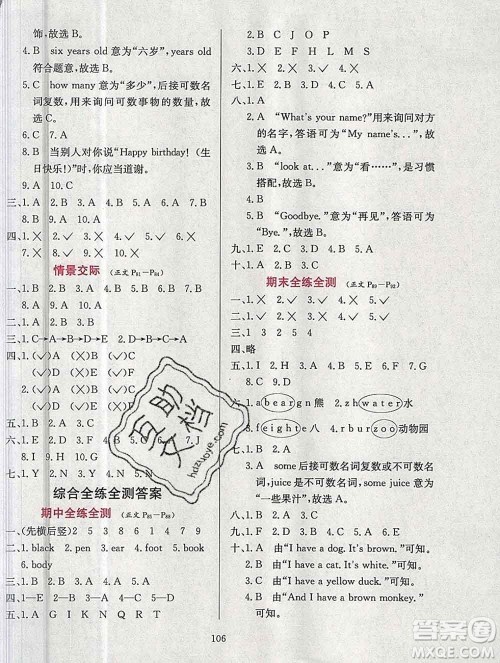 饰,故选B。
4. B six years old 意为“六岁”,years old
符合题意,故选B。
5. C how many 意为“多少”,后接可数名
词复数,用来询问可数事物的数量,故
选C。
6. A 7. B
8. B 当别人对你说“Happy birthday!(生
日快乐!)”时,你应当道谢。
9. A 10. C
三、1. A 2. B 3. A 4. B 5. B
四、1. ╳ 2. ✓ 3. ╳ 4. ✓ 5. ✓ 6. ╳
7. ╳ 8. ╳ 9. ✓ 10. ✓
情景交际 (正文 P81-P84)
一、1. B 2. A 3. A 4. B 5. A
二、1. C→A→B→D→E 2. A→D→E→B→C
三、(✓)A (╳)B (✓)C (✓)D
(✓)E (╳)F
四、(✓)A (╳)B (✓)C (╳)D
(╳)E (✓)F
五、1. C 2. A 3. B
六、1. B 2. A 3. B
七、1. Y 2. N 3.
综合全练全测答案
期中全练全测 (正文 P85-P88)
一、(先横后竖) 2 5 3 8 6 1 4 7 9
二、1. black 2. pen 3. ear 4. foot 5. book
6. body
三、1. C 2. B 3. A 4. B 5. A
四、1. B 2. A 3. B 4. B 5. B
五、1. A G I K N Q R T
106
2. B C J O P
3. D E F H L M S
六、1. ╳ 2. ╳ 3. ✓ 4. ✓ 5. ╳
七、1. D 2. E 3. C 4. B 5. A
八、1. A “What's your name?”用来询问对方
的名字,答语可为“My name's...”,
故选A。
2. B “look at...”意为“看……”,是习惯
搭配,故选B。
3. B “Goodbye.”意为“再见”,答语可为
“Bye.”,故选B。
九、1. E 2. D 3. C 4. A 5. B
期末全练全测 (正文 P89-P92)
一、1. ✓ 2. ╳ 3. ╳ 4. ✓ 5. ╳
三、1 3 2 5 4
四、略
五、1. I 2. H 3. G 4. B 5. F 6. A 7. E
8. C 9. D
beargn 熊 2. zhwater水
3. feighte 8 4. rburzoo 动物园
七、1. Y 2. N 3. Y 4. Y 5. N
some 后接可数名词复数或不可数名
词,juice 是不可数名词,some juice 意为
“一些果汁”,故选A。
2. B 3. B 4. A 5. B
九、1. B 2. A 3. A 4. B 5. B
十、1. B 2. D 3. C 4. A 5. E
十一、1. A 由“I have a dog. It's brown.”可知。
2. A 由“I have a cat. It's white.”可知。
3. C 由“I have a yellow duck.”可知。
4. A 由“I have a brown monkey.”可知。
互助文档
hdzuoye.com
答案圈
MXQE.COM